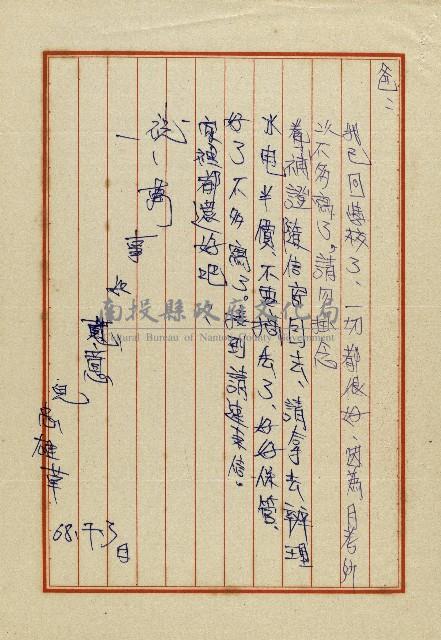 爸：
我已回學校了、一切都很好、因為月考所
以不多寫了。請勿掛念
眷補證隨信寄回去，請拿去辦理
水电半價，不要搞丢了、好好保管、
好了不多寫了。接到請速來信。
家裡都還好吧！
祝：萬事如意
兒 雄華
68.
3日
南投縣政府文化局
Cultural Bureau of Nantou County Government